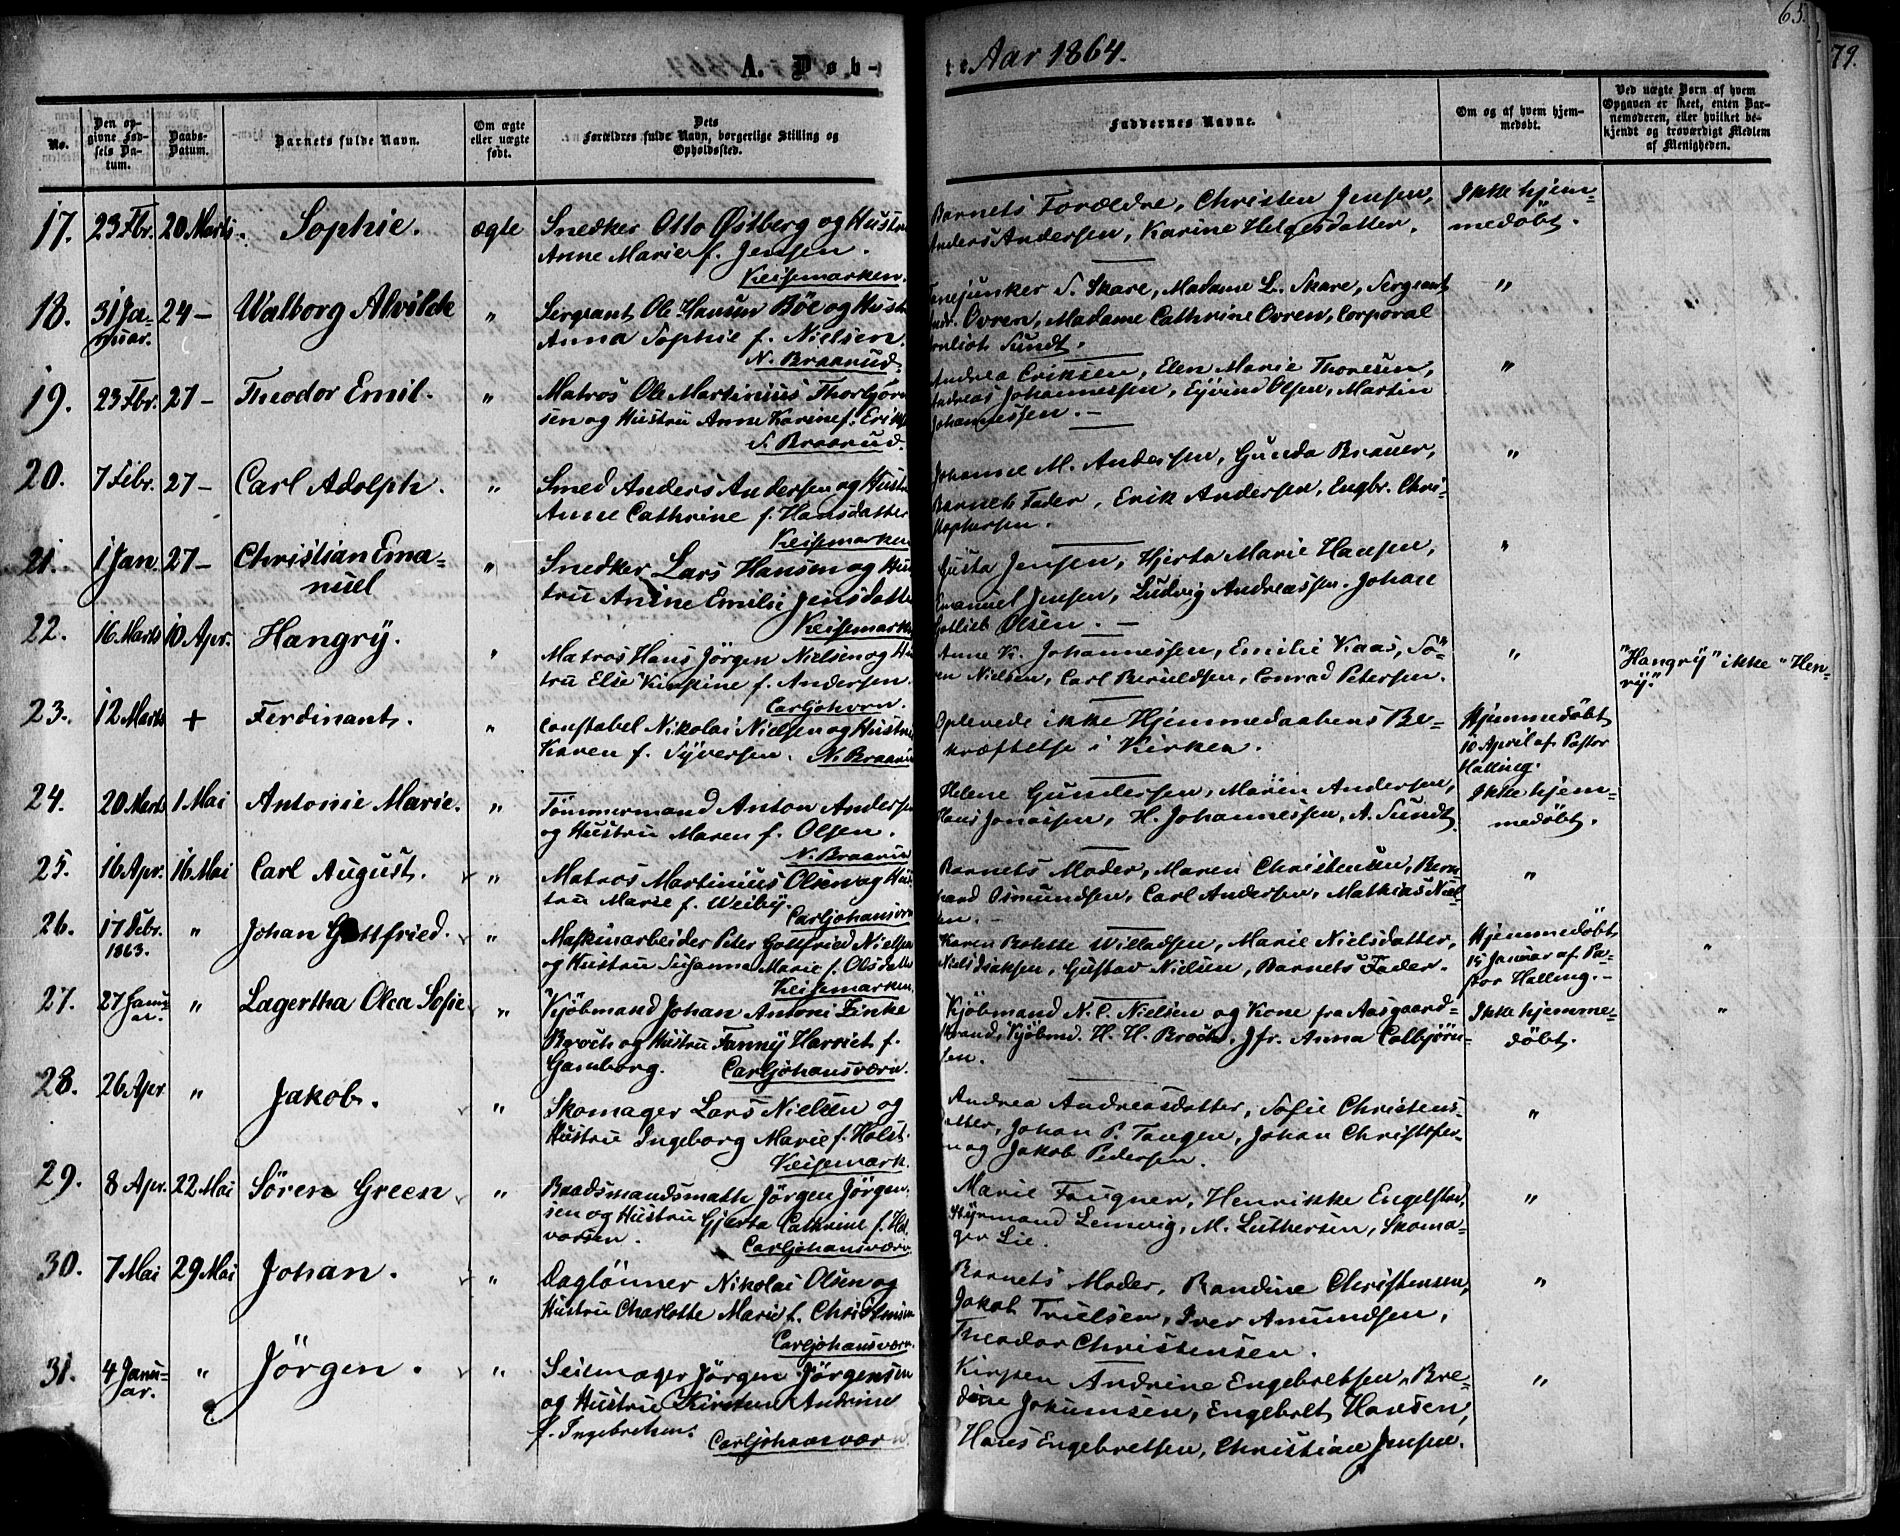 A. Døb-
te Aar 1864.
65.
79.
No.
Den op-
givne Fød-
sels Da-
tum.
Daabs-
Datum.
Barnets fulde Navn.
Om ægte
eller uægte
født.
Dets
Forældres fulde Navn, borgerlige Stilling og
Opholdssted.
Faddernes Navne.
Om og af hvem hjem-
medøbt.
Ved uægte Børn af hvem
Opgaven er skeet, enten Bar-
nemoderen, eller hvilket be-
kjendt og troværdigt Medlem
af Menigheden.
17. 23 Fbr. 20 Marts. Sophie. ægte Snedker Otto Østberg og Hustru
Anne Marie f. Jensen.
Keisemarken.
Barnets Forældre, Christen Jensen,
Anders Andersen, Karine Helgesdatter.
Ikke hjem-
medøbt.
18. 31 Ja-
nuar. 24 – Walborg Alvilde „ Sergeant Ole Hansen Böe og Hustru
Anna Sophie f. Nielsen.
N. Braarud.
Fanejunker S. Skare, Madame L. Skare, Sergeant
Ovren, Madame Cathrine Ovren, Corporal
Sundt.
„
19. 23 Fbr. 27 – Theodor Emil. „ Matros Ole Martinius Thorbjörn-
sen og Hustru Anne Karine f. Eriks
S. Braarud.
Andrea Eriksen, Elen Marie Thoresen,
Andreas Johannessen, Eyvind Olsen, Martin
Johannessen. –
„
20. 7 Febr. 27 – Carl Adolph. „ Smed Anders Andersen og Hustru
Anne Cathrine f. Hansdatter
Keisemarken
Johanne M. Andersen, Gunda Brauer,
Barnets Fader, Erik Andersen, Engbr. Chri-
stophersen.
„
21. 1 Jan. 27 – Christian Ema-
nuel „ Snedker Lars Hansen og Hus
tru Anine Emilie Jensdatter
Keisemark
Gusta Jensen, Hjerta Marie Hansen,
Emanuel Jensen, Ludvig Andreassen, Johan
Gotlieb Olsen. –
„
22. 16 Marts 10 Apr. Hangry. „ Matros Hans Jörgen Nielsen og Hu
tru Else Kirstine f. Andersen.
Carljohsvrn.
Anne K. Johannessen, Emilie Kaas, Sö-
ren Nielsen, Carl Beruldsen, Conrad Petersen.
„
"Hangry" ikke "Hen-
ry."
23. 12 Marts + Ferdinant. „ Constabel Nikolai Nielsen og Hustru
Karen f. Syversen. N. Braarud
Oplevede ikke Hjemmedaabens Be-
kræftelse i Kirken.
Hjemmedøbt
10 April af Pastor
Halling.
24. 20 Marts 1 Mai Antonie Marie. „ Tömmermand Anton Andersen
og Hustru Maren f. Olsen.
N. Braarud
Helene Gundersen, Maren Andersen,
Hans Jonassen, H. Johannessen, A. Sundt.
Ikke hjem-
medøbt.
25. 16 Apr. 16 Mai Carl August. „ Matros Martinius Olsen og Hus
tru Marie f. Weiby.
Carljohansvrn
Barnets Moder, Maren Christensen, Bern
hard Osmundsen, Carl Andersen, Mathias Niel-
sen. –
„
26. 17 Febr.
1863. „ Johan Gottfried. „ Maskinarbeider Peter Gottfried Nielsen
og Hustru Susanna Marie f. Olsdatter
Keisemarken.
Karen Willadsen, Marie Nielsdatter,
Niels Isaksen, Gustav Nielsen, Barnets Fader.
Hjemmedøbt
15 Januar af Pa-
stor Halling. –
„
27. 27 Janu-
ar. „ Lagertha Olea Sofie „ Kjöbmand Johan Antoni Zinke
Broch og Hustru Fanny Harriet f.
Gamborg. Carljohansværn.
Kjöbmand N. C. Nielsen og Kone fra Aasgaard-
strand, Kjöbmd. H. H. Broch, Jfr. Anna Colbjörn-
sen.
Ikke hjemme-
døbt.
„
28. 26 Apr „ Jakob. „ Skomager Lars Nielsen og
Hustru Ingeborg Marie f. Holst.
Keisemark.
Andrea Andreasdatter, Sofie Christens-
datter, Johan P. Tangen, Johan Christofer-
sen og Jakob Pedersen.
„
29. 8 Apr. 22 Mai Sören Green „ Baadsmandsmath Jörgen Jörgen-
sen og Hustru Gjerta Cathrine f. Hal
vorsen.
Carljohansværn
Marie Faugner, Henrikke Engelstad,
Styrmand Lemvig, M. Luthersen, Skoma-
ger Lie.
„
30. 7 Mai 29 Mai Johan. „ Daglönner Nikolai Olsen og
Hustru Charlotte Marie f. Christensen
Carljohansværn.
Barnets Moder, Randine Christensen,
Jakob Truelsen, Iver Amundsen,
Theodor Christensen.
„
31. 4 Janu-
ar. „ Jörgen. „ Seilmager Jörgen Jörgensen
og Hustru Kirsten Andrine
f. Ingebretsen.
Carljohansværn.
Kirsten Andrine Engebretsen, Bre-
dine Jokumsen, Engebret Hansen,
Hans Engebretsen, Christian Jensen.
„